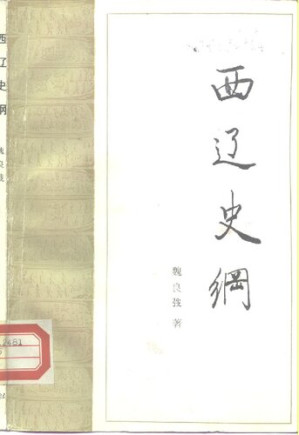 西辽史纲
魏良弢 著
西辽史纲
魏良弢